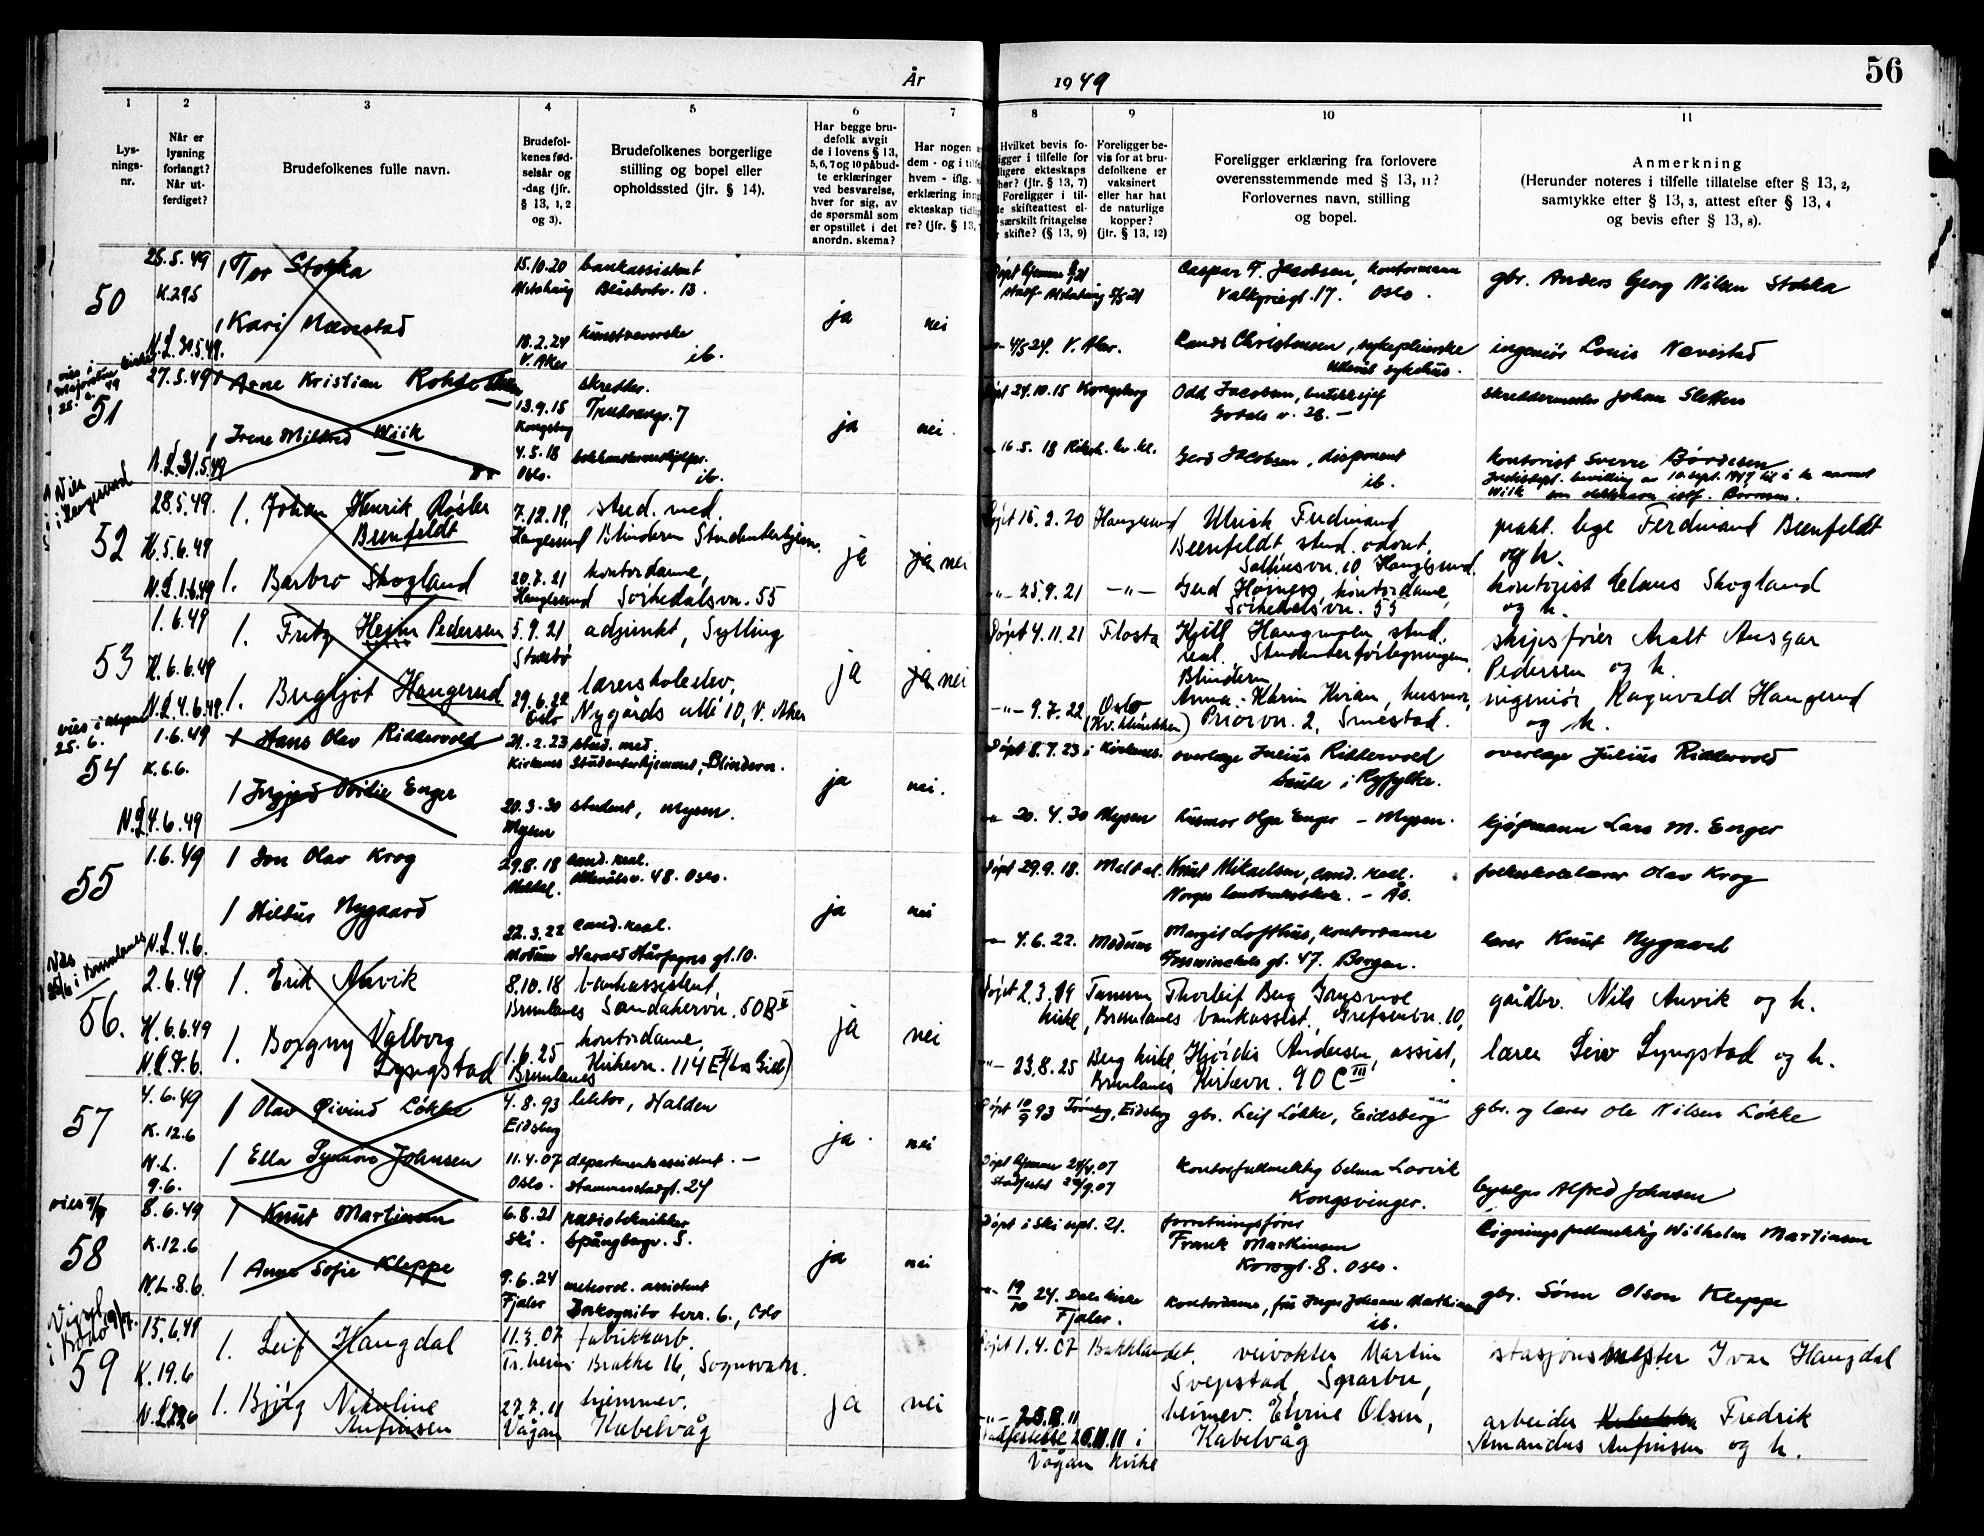 År 1949
56
1 2 3 4 5 6 7 8 9 10 11
Lys-
nings-
nr.
Når er
lysning
forlangt?
Når ut-
ferdiget?
Brudefolkenes fulle navn.
Brudefol-
kenes fød-
selsår og
-dag (jfr.
§ 13, 1, 2
og 3).
Brudefolkenes borgerlige
stilling og bopel eller
opholdssted (jfr. § 14).
Har begge bru-
defolk avgit
de i lovens § 13,
5, 6, 7 og 10 påbud-
te erklæringer
ved besvarelse,
hver for sig, av
de spørsmål som
er opstillet i det
anordn. skema?
Har nogen
dem - og i tilfe
hvem - iflg.
erklæring inng
ekteskap tidlig
re? (jfr. § 13,
Hvilket bevis fo-
igger i tilfelle for
ligere ekteskaps
hør? (jfr. § 13, 7)
Foreligger i til-
le skifteattest el-
særskilt fritagelse
skifte? (§ 13, 9)
Foreligger be-
vis for at bru-
defolkene er
vaksinert
eller har hat
de naturlige
kopper?
(jfr. § 13, 12)
Foreligger erklæring fra forlovere
overensstemmende med § 13, 11?
Forlovernes navn, stilling
og bopel.
Anmerkning
(Herunder noteres i tilfelle tillatelse efter § 13, 2,
samtykke efter § 13, 3, attest efter § 13, 4
og bevis efter § 13, 8).
50
25.5.49
K.29.5
N.L. 31.5.49.
1 Tor Stokka
15.10.20
bankassistent
13.
ja
nei
Caspar F. Jacobsen, kontormann
Valkyriegt. 17. Oslo.
gbr. Anders Georg Nilsen Stokka
1 Kari Nævestad
18.2.24
V. Aker
ib.
4/5 24. V. Aker.
Christensen, sykepleierske
Ullevål sykehus.
ingeniør Louis Nævestad
51
27.5.49
N.L. 31.5.49
1 Arne Kristian
13.9.15
Kongsberg
skredder.
7
ja
nei.
Døpt 24.10.15 Kongsberg
Odd Jacobsen, butikksjef
Gotals v. 28. –
skreddermester Johan Sletten
1 Irene Mildred Wiik
4.5.18
Oslo.
ib.
16.5.18
Gerd Jacobsen, disponent
ib.
kontorist Sverre
52
28.5.49.
K. 5.6.49
N.L. 1.6.49
1. Johan Henrik Røsler
Beenfeldt
7.12.19,
Haugesund
stud. med.
Blindern Studenterhjem.
ja
ja nei
Døpt 15.2.20 Haugesund
Ulrich Ferdinand
Beenfeldt, stud. odont.
Salhusvn. 10 Haugesund.
prakt. lege Ferdinand Beenfeldt
og h.
1. Barbro Skogland
20.7.21
Haugesund
kontordame,
Sørkedalsvn. 55
-"- 25.9.21 -"-
Gerd Højness, kontordame,
Sørkedalsvn. 55
kontorist Claus Skogland
og h.
53
1.6.49
K. 6.6.49
N.L. 4.6.49.
1. Fritz Heym Pedersen
5.9.21
Stokkø
adjunkt, Sylling
ja
ja nei
Døpt 4.11.21 Flosta
Kjell Haugmoen, stud.
real. Studenterforlegningen,
Blindern
skipsfører Aralt Ansgar
Pedersen og h.
1. Bergljot Haugerud
29.6.22
Oslo
lærerskoleelev,
Nygårds allé 10, V. Aker
-"- 9.7.22 Oslo
(Kv. klinikken)
Anna-Karin Kvian, husmor,
Priorvn. 2, Smestad.
ingeniør Ragnvald Haugerud
og h.
54
1.6.49
K. 6.6.
N.L. 4.6.49
1 Hans Olav Riddervold
21.2.23
Kirkenes
stud. med.
Studenterhjemmet, Blindern.
ja
nei.
Døpt 8.7.23 i Kirkenes.
overlege Julius Riddervold
Sauda i Ryfylke.
overlege Julius Riddervold
1 Ingjerd Ovidie Enger
20.3.30
Mysen
student, Mysen.
20.4.30 Mysen
husmor Olga Enger – Mysen.
kjøpmann Lars M. Enger
55
1.6.49
N.L. 4.6.
1 Jon Olav Krog
29.8.18
Meldal.
cand. real.
Ullevålsv. 48. Oslo.
ja
nei
Døpt 29.9.18. Meldal.
Knut Mikaelsen, cand. real.
Norges landbrukshøiskole. – Ås.
folkeskolelærer Olav Krog
1 Hildur Nygaard
22.3.22
Modum
cand. real.
Harald Hårfagres gt. 10.
4.6.22. Modum
Margit Lofthus, kontordame
gt. 47. Bergen.
lærer Knut Nygaard
56.
2.6.49
K. 6.6.49
1. Erik Anvik
8.10.18
Brunlanes
bankassistent,
Sandakervn. 50B
ja
nei
Døpt 2.3.19 Tanum
kirke, Brunlanes
Thorleif Berg
bankassist., Grefsenvn. 10,
gårdbr. Nils Anvik og h.
1. Borgny Valborg
Lyngstad
1.6.25
Brunlanes
kontordame,
Kirkevn. 114 E
-"- 23.8.25 Berg kirke,
Brunlanes
Hjørdis Andersen, assist,
Kirkevn. 90 C III
lærer Lyngstad og h.
57
4.6.49
K. 12.6
N.L.
9.6.
1 Olav Øivind Løkke
4.8.93
Eidsberg
lektor, Halden
ja.
nei
Døpt 10/9 93 Eidsberg
gbr. Leif Løkke, Eidsberg
gbr. og lærer Ole Nilsen Løkke
1 Ella Johnsen
11.4.07
Oslo.
departementsassistent. –
Hammerstadgt. 24
kontorfullmektig Selma
Kongsvinger.
Alfred Johnsen
58
8.6.49
K. 12.6
N.L. 8.6.
1 Knut Martinsen
6.8.21
Ski.
radiotekniker
Spångbergv. 5.
ja
nei
Døpt i Ski sept. 21.
forretningsfører
Frank Martinsen
Korsgt. 8. Oslo.
Ligningsfullmektig Wilhelm Martinsen
1 Anne Sofie Kleppe
9.6.24
Fjaler
meteorol. assistent
terr. 6., Oslo
19/10 24. Dale kirke
Fjaler.
kontordame, frk. Inger Johanne Martinsen
ib.
gbr. Søren Olsen Kleppe
59
15.6.49
K. 19.6
1. Leif Haugdal
11.3.07
Tr.heim
fabrikkarb.
Brakke 16, Sognsvatn.
ja
nei
Døpt 1.4.07 Bakklandet.
veivokter Martin
Svepstad, Sparbu,
stasjonsmester Ivar Haugdal
1. Bjørg Nikoline
Anfinsen
27.7.11
Vågan
hjemmev.
Kabelvåg
i
Vågan kirke
heimev. Elvine Olsen,
Kabelvåg
arbeider Fredrik
Amandus Anfinsen og h.